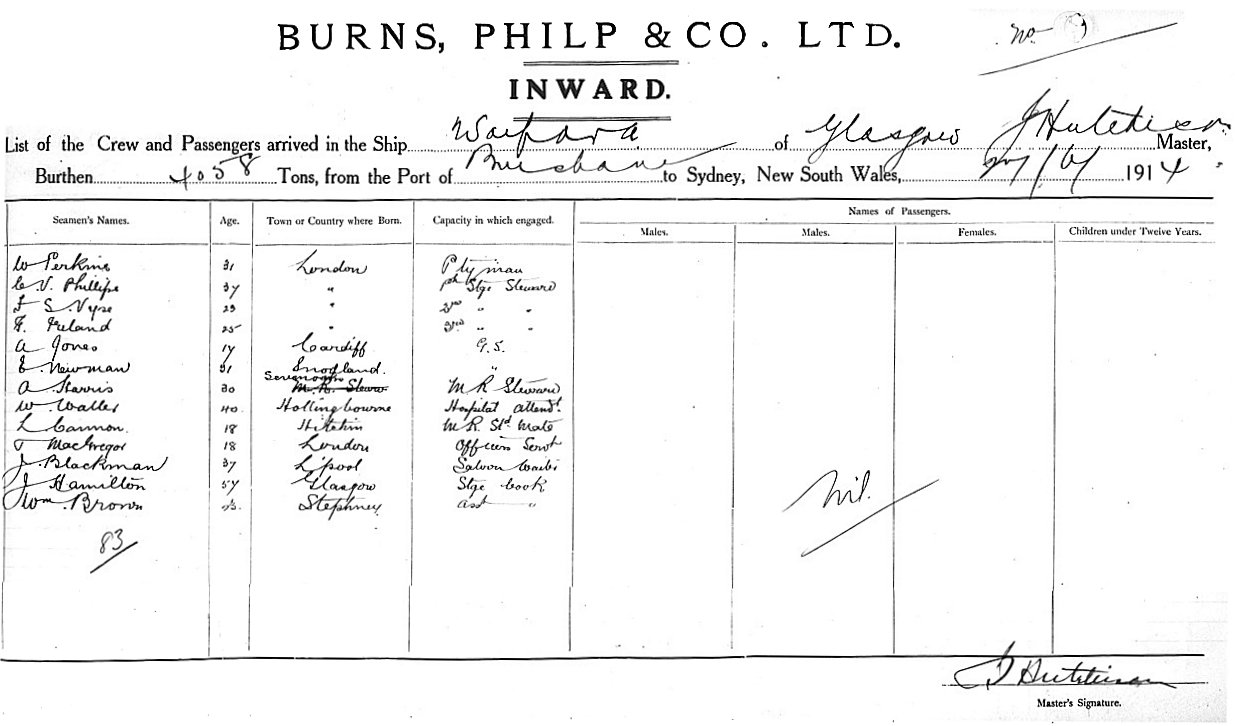 BURNS, PHILP & CO. LTD.
No
INWARD.
List of the Crew and Passengers arrived in the Ship Waipara of Glasgow J Hutchison Master,
Burthen 4058 Tons, from the Port of Brisbane to Sydney, New South Wales, 1914
Names of Passengers.
Seamen's Names. Age. Town or Country where Born. Capacity in which engaged. Males. Males. Females. Children under Twelve Years.
W Perkins 31 London P ty man
C. V. Phillips 37 " Stge Steward
F S. Vyse 23 " 2nd " "
F. Ireland 25 " 3rd " "
A Jones 17 Cardiff G. S.
E Newman 31 Snodland. "
A Harris 30 M. R. Steward
W. Waller 40 Hollingbourne Hospital Attendt
L Cannon. 18 Hitchin M R. Std Mate
T MacGregor 18 London Officers Servt
J. Blackman 37 L'pool Saloon Waiter
J Hamilton 57 Glasgow Stge Cook
Wm. Brown Stephney. asst "
Nil.
83
J Hutchison
Master's Signature.